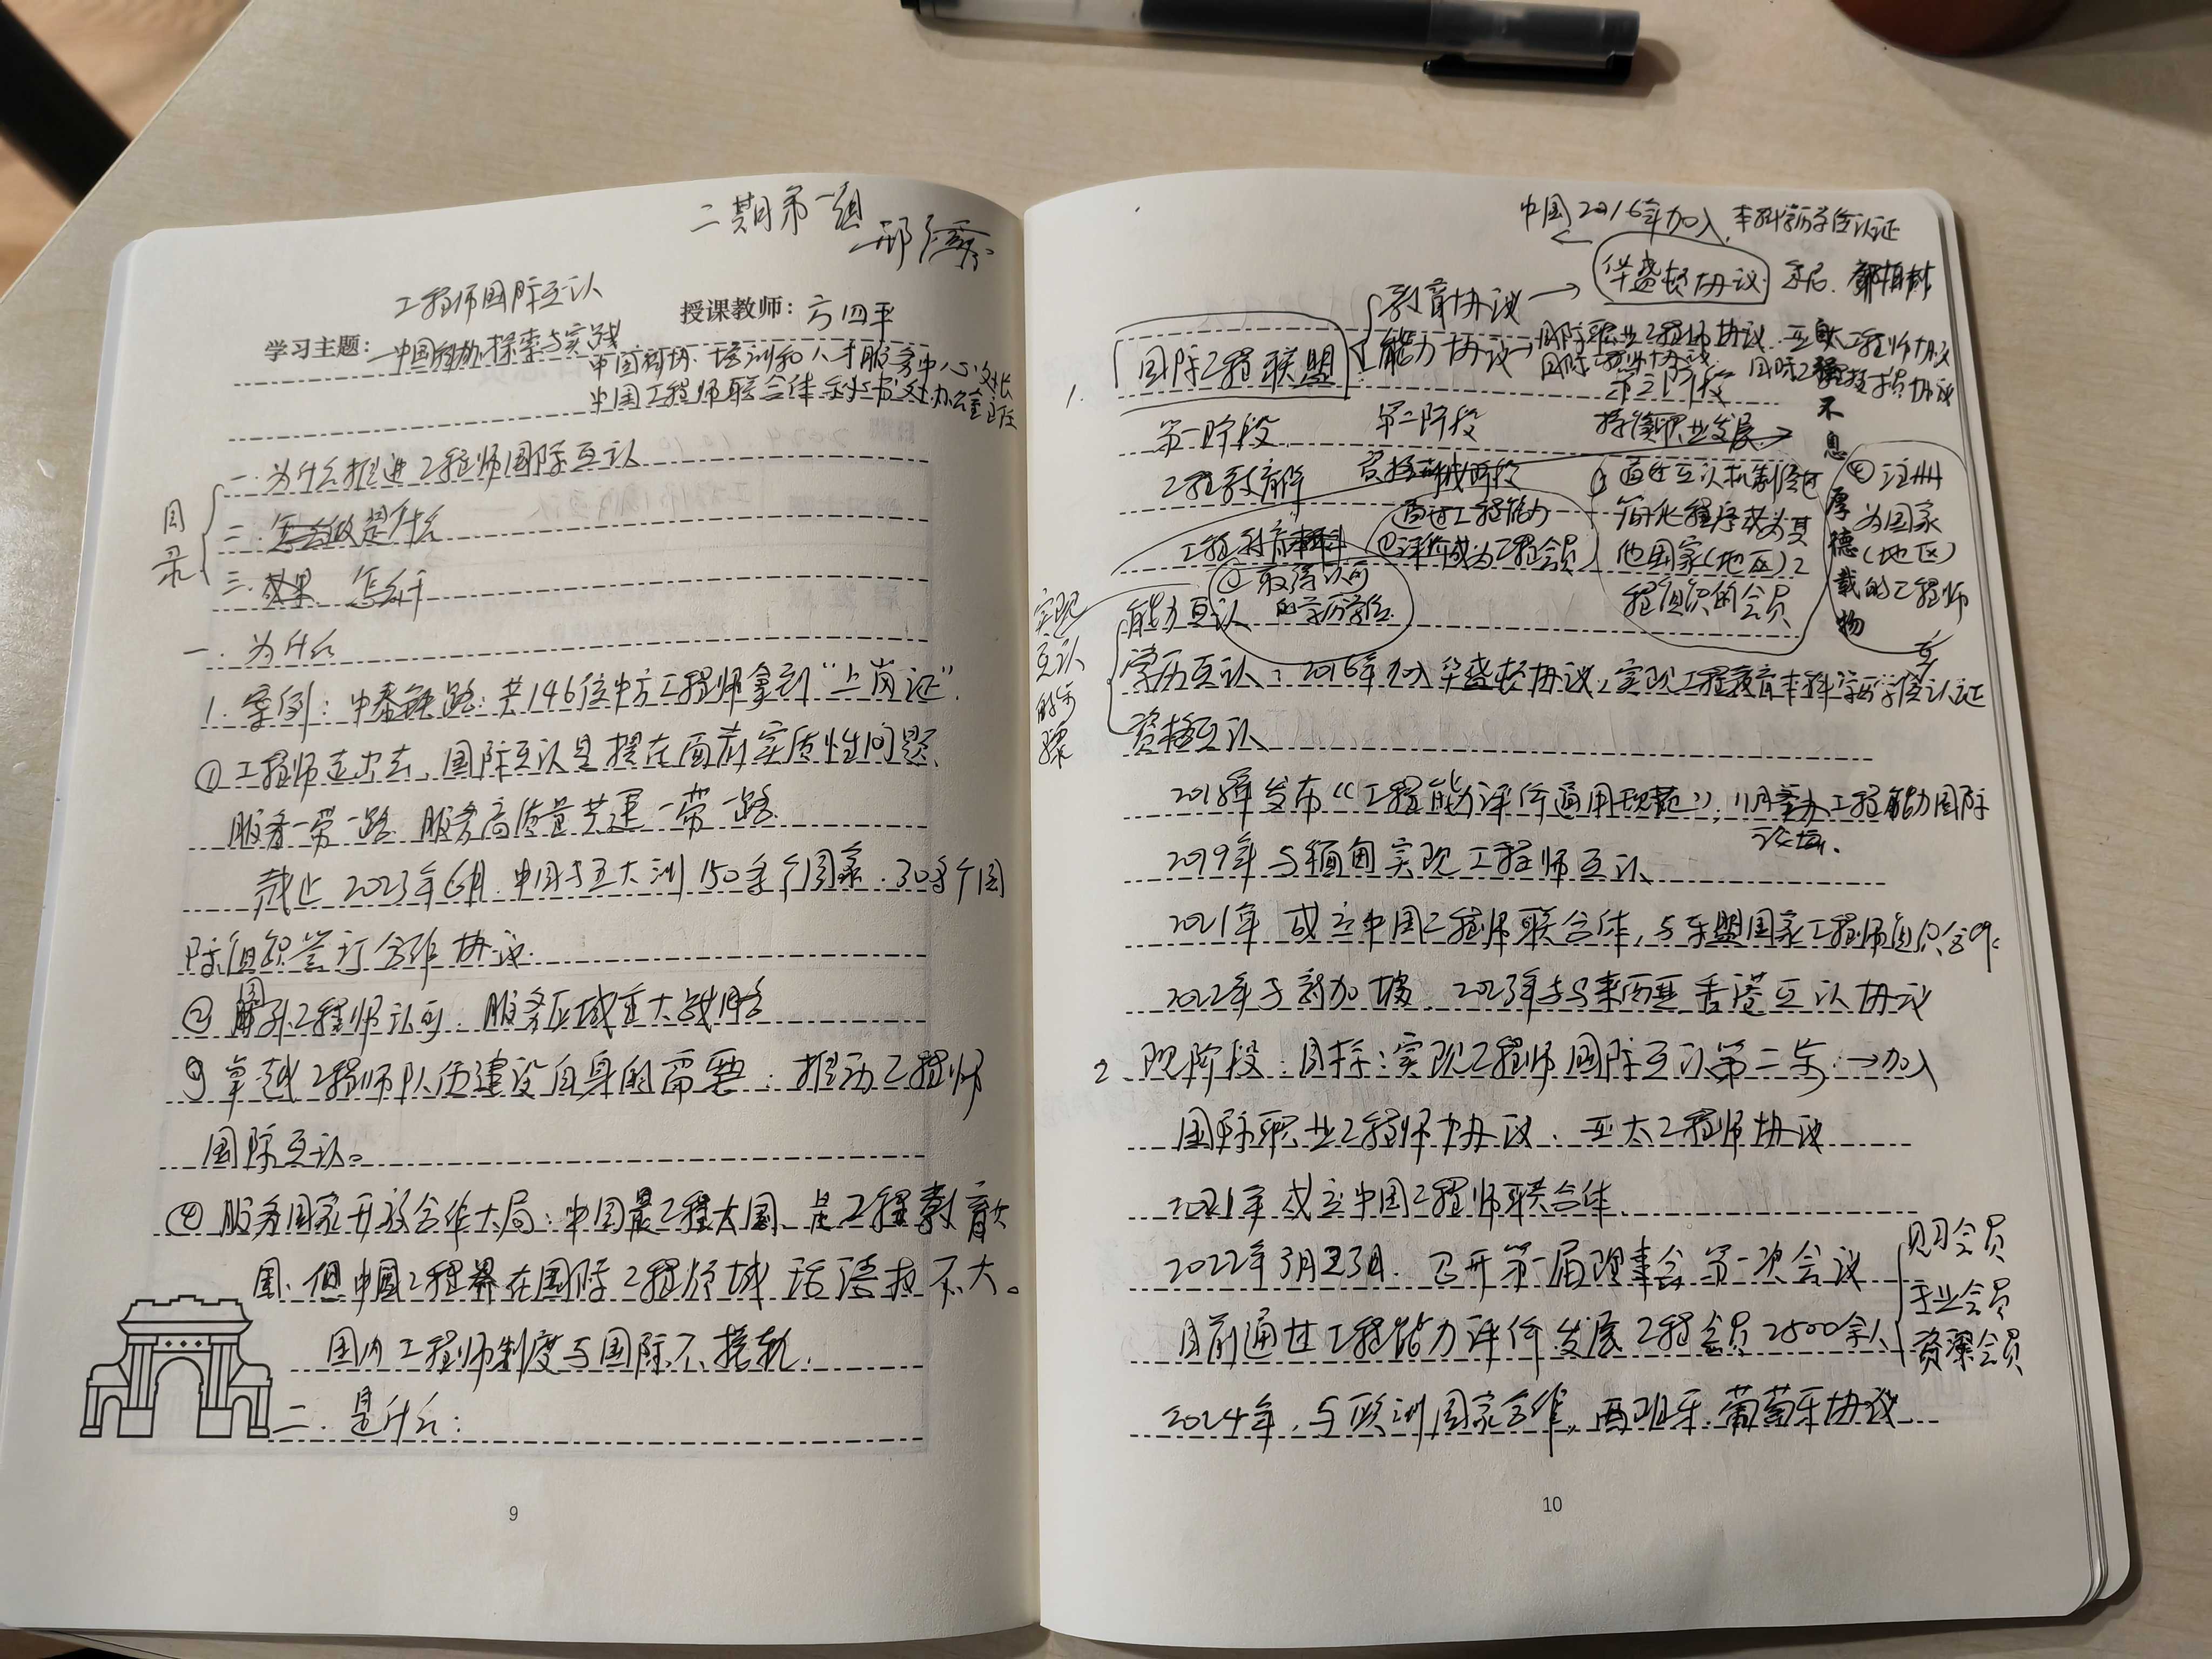 二期第一组
邢
工程师国际互认
学习主题：—中国科协探索与实践
授课教师：方四平
中国科协 培训和人才服务中心处长
中国工程师联合体秘书处办公室主任
目录
一.为什么推进工程师国际互认
二.是什么
三.怎么干
一.为什么
1.案例：中泰铁路：共146位中方工程师拿到“上岗证”.
①工程师走出去，国际互认是摆在面前实质性问题.
服务一带一路 服务高质量共建一带一路.
截止2023年6月.中国与五大洲150多个国家.30多个国
际组织签订合作协议.
②工程师认可：服务区域重大战略
③卓越工程师队伍建设自身的需要：推动工程师
国际互认。
④服务国家开放合作大局：中国是工程大国、是工程教育大
国.但中国工程界在国际工程领域话语权不大。
国内工程师制度与国际不接轨.
二.是什么：
9
中国2016年加入,本科学历学位认证
华盛顿协议
教育协议→
1.
国际工程联盟
能力协议→国际职业工程师协议.亚太工程师协议
国际工程技术员协议
第一阶段
第二阶段
第三阶段
持续职业发展
自强不息
厚德载物
工程教育
①取得认可的学历学位
②通过工程能力评价成为工程会员
③通过互认机制经过
简化程序获为其
他国家(地区)工
程组织的会员
④注册
为国家
(地区)
的工程师
实现互认的步骤
能力互认
学历互认：2016年加入华盛顿协议,实现工程教育本科学历学位认证
资格互认
2018年发布《工程能力评价通用规范》,11月举办工程能力国际
论坛.
2019年与缅甸实现工程师互认
2021年成立中国工程师联合体,与东盟国家工程师组织合作.
2022年与新加坡.2023年与马来西亚 香港互认协议
2.现阶段：目标：实现工程师国际互认第二步：→加入
国际职业工程师协议、亚太工程师协议
2021年成立中国工程师联合体.
2022年3月 召开第一届理事会第一次会议
目前通过工程能力评价发展工程会员2500余人
会员
专业会员
资深会员
2024年.与欧洲国家合作,西班牙.葡萄牙协议
10